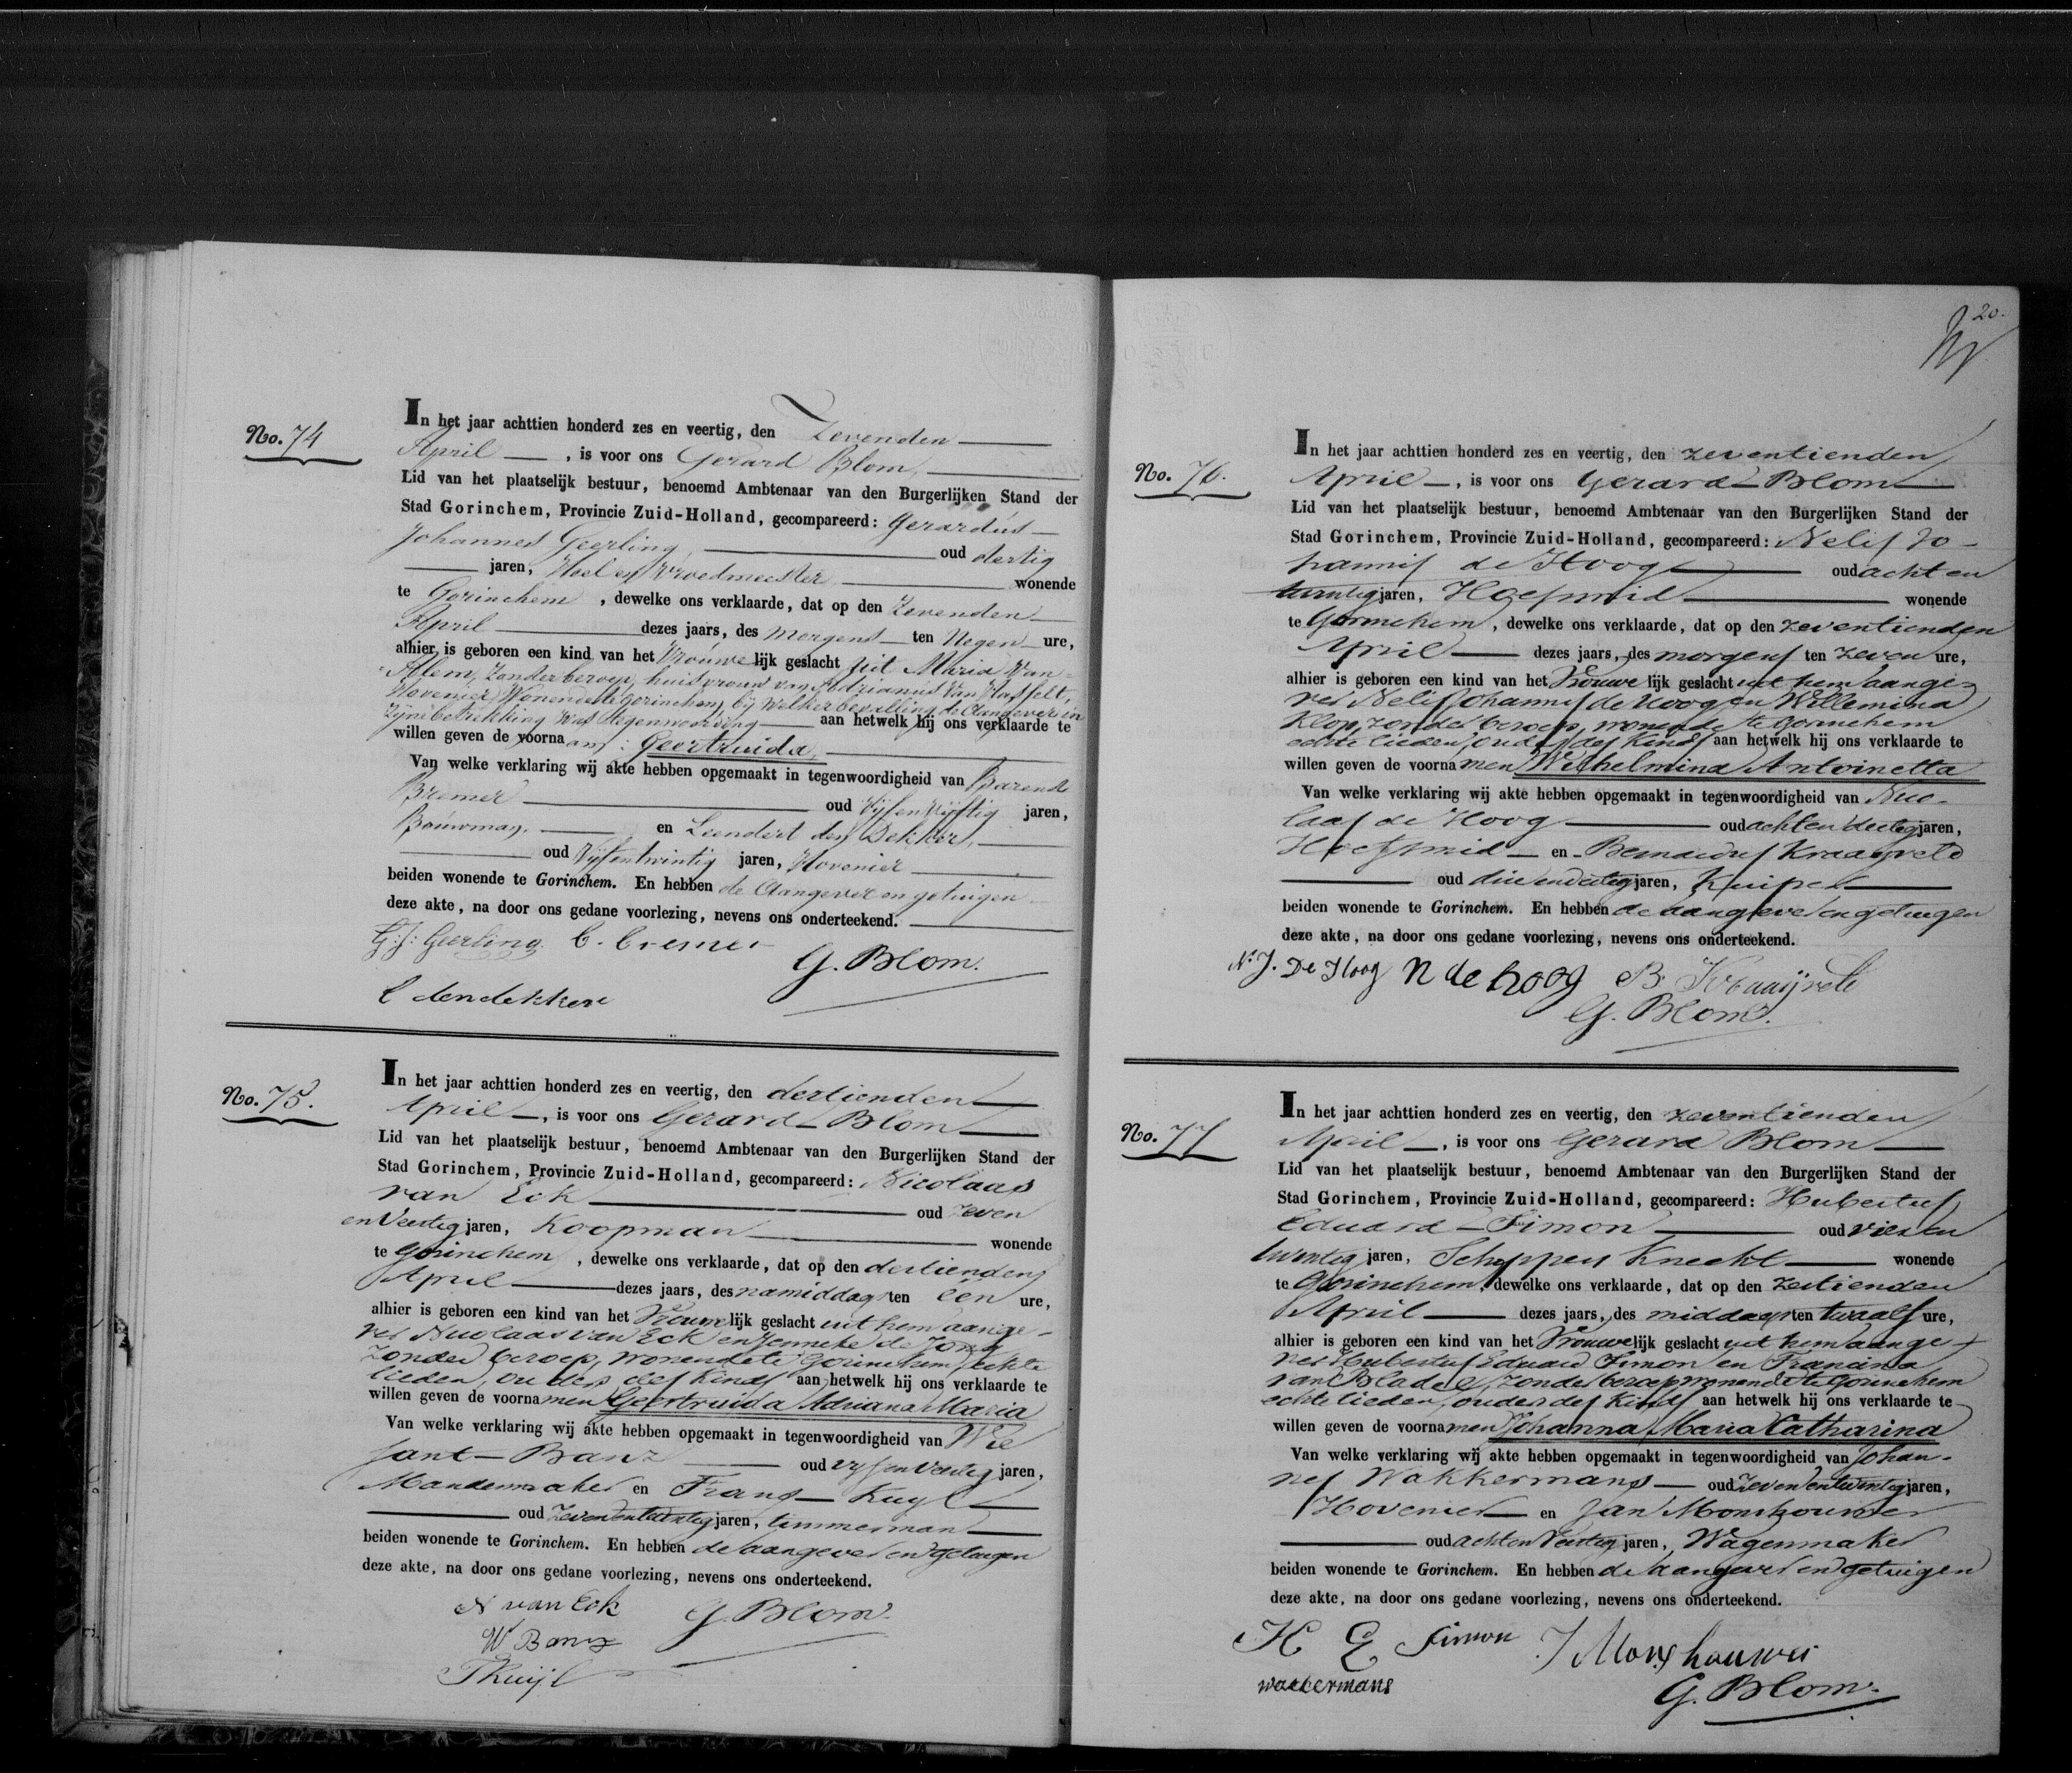 No. 74
In het jaar achttien honderd zes en veertig, den Zevenden
April, is voor ons Gerard Blom,
Lid van het plaatselijk bestuur, benoemd Ambtenaar van den Burgerlijken Stand der
Stad Gorinchem, Provincie Zuid-Holland, gecompareerd: Gerardus
Johannes Geerling, oud dertig
jaren, Heel en Vroedmeester wonende
te Gorinchem, dewelke ons verklaarde, dat op den Zevenden
April dezes jaars, des Morgens ten Negen ure,
alhier is geboren een kind van het Vrouwelijk geslacht uit Maria Van
Alem, Zonder beroep, huisvrouw van Adrianus Van Hasselt,
Hovenier, Wonende te Gorinchem, bij Welker bevalling de Aangever in
Zijne betrekking was tegenwoordig aan hetwelk hij ons verklaarde te
willen geven de voornaam: Geertruida,
Van welke verklaring wij akte hebben opgemaakt in tegenwoordigheid van Barende
Bremer oud Vijfenvijftig jaren,
Bouwman, en Leendert den Dekker,
oud Vijfentwintig jaren, Hovenier
beiden wonende te Gorinchem. En hebben de Aangever en getuigen
deze akte, na door ons gedane voorlezing, nevens ons onderteekend.
G:J: Geerling. B. Bremer
G. Blom.
L den dekker
No. 75.
In het jaar achttien honderd zes en veertig, den dertienden
April, is voor ons Gerard Blom
Lid van het plaatselijk bestuur, benoemd Ambtenaar van den Burgerlijken Stand der
Stad Gorinchem, Provincie Zuid-Holland, gecompareerd: Nicolaas
van Eck oud zeven
en Veertig jaren, Koopman wonende
te Gorinchem, dewelke ons verklaarde, dat op den dertienden
April dezes jaars, des namiddags ten één ure,
alhier is geboren een kind van het Vrouwelijk geslacht uit hem aange-
ver Nicolaas van Eck en Jenneke de Jong
zonder beroep, wonende te Gorinchem, echte
lieden, ouders des Kinds aan hetwelk hij ons verklaarde te
willen geven de voornamen Geertruida Adriana Maria
Van welke verklaring wij akte hebben opgemaakt in tegenwoordigheid van Wil
Banz oud vijf en Veertig jaren,
Mandenmaker en Frans Kuyl
oud Zeven en twintig jaren, timmerman
beiden wonende te Gorinchem. En hebben de aangever en getuigen
deze akte, na door ons gedane voorlezing, nevens ons onderteekend.
N van Eck G. Blom.
W Banz
F Kuijl
20.
No. 76.
In het jaar achttien honderd zes en veertig, den zeventienden
April, is voor ons Gerard Blom
Lid van het plaatselijk bestuur, benoemd Ambtenaar van den Burgerlijken Stand der
Stad Gorinchem, Provincie Zuid-Holland, gecompareerd: Nelis Jo-
hannis de Hoog oud acht en
twintig jaren, Hoefsmid wonende
te Gorinchem, dewelke ons verklaarde, dat op den zeventienden
April dezes jaars, des morgens ten zeven ure,
alhier is geboren een kind van het Vrouwelijk geslacht uit hem aange-
ver Nelis Johannis de Hoog en Willemina
Klop, zonder beroep, wonende te Gorinchem
echte lieden, ouders des Kinds aan hetwelk hij ons verklaarde te
willen geven de voornamen Wilhelmina Antoinetta
Van welke verklaring wij akte hebben opgemaakt in tegenwoordigheid van Nico-
laas de Hoog oud acht en dertig jaren,
Hoefsmid en Bernardus Kraayveld
oud drie en dertig jaren, Kuiper
beiden wonende te Gorinchem. En hebben de aangever en getuigen
deze akte, na door ons gedane voorlezing, nevens ons onderteekend.
N. J. De Hoog N de hoog B. Kraaijveld
G. Blom.
No. 77
In het jaar achttien honderd zes en veertig, den zeventienden
April, is voor ons Gerard Blom
Lid van het plaatselijk bestuur, benoemd Ambtenaar van den Burgerlijken Stand der
Stad Gorinchem, Provincie Zuid-Holland, gecompareerd: Hubertus
Eduard Simon oud vier en
twintig jaren, Schippers Knecht wonende
te Gorinchem, dewelke ons verklaarde, dat op den zestienden
April dezes jaars, des middags ten twaalf ure,
alhier is geboren een kind van het Vrouwelijk geslacht uit hem aange-
ver Hubertus Eduard Simon en Francina
van Bladel, zonder beroep wonende te Gorinchem
echte lieden, ouders des Kinds aan hetwelk hij ons verklaarde te
willen geven de voornamen Johanna Maria Catharina
Van welke verklaring wij akte hebben opgemaakt in tegenwoordigheid van Johan-
nes Wakkermans oud Zeven en twintig jaren,
Hovenier en Jan Monshouwer
oud acht en Veertig jaren, Wagenmaker
beiden wonende te Gorinchem. En hebben de aangever en getuigen
deze akte, na door ons gedane voorlezing, nevens ons onderteekend.
H E Simon J Monshouwer
wakkermans G. Blom.